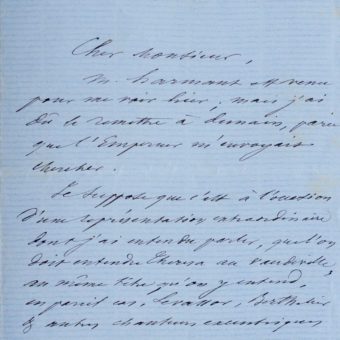 Cher Monsieur,
M. Harmant est venu
pour me voir hier, mais j'ai
dû le remettre à demain, parce
que l'Empereur m'envoyait
chercher.
Je suppose que c'est à l'occasion
d'une représentation extraordinaire
dont j'ai entendu parler, que l'on
doit entendre Thérésa au vaudeville
au même titre qu'on y entend,
en pareil cas, Levassor, Berthelier
& autres chanteurs excentriques